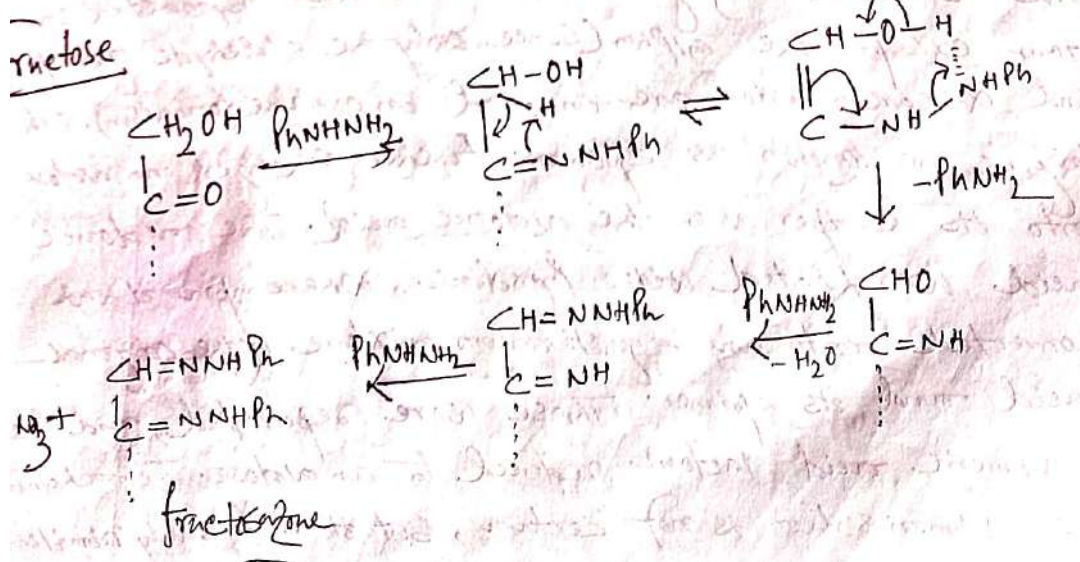 ructose
CH2OH
C=O
PhNHNH2
CH-OH
H
C=NNHPh
⇌
CH-O-H
C-NH
NHPh
-PhNH2
CHO
C=NH
PhNHNH2
-H2O
CH=NNHPh
C=NH
PhNHNH2
CH=NNHPh
+
C=NNHPh
fructosazone